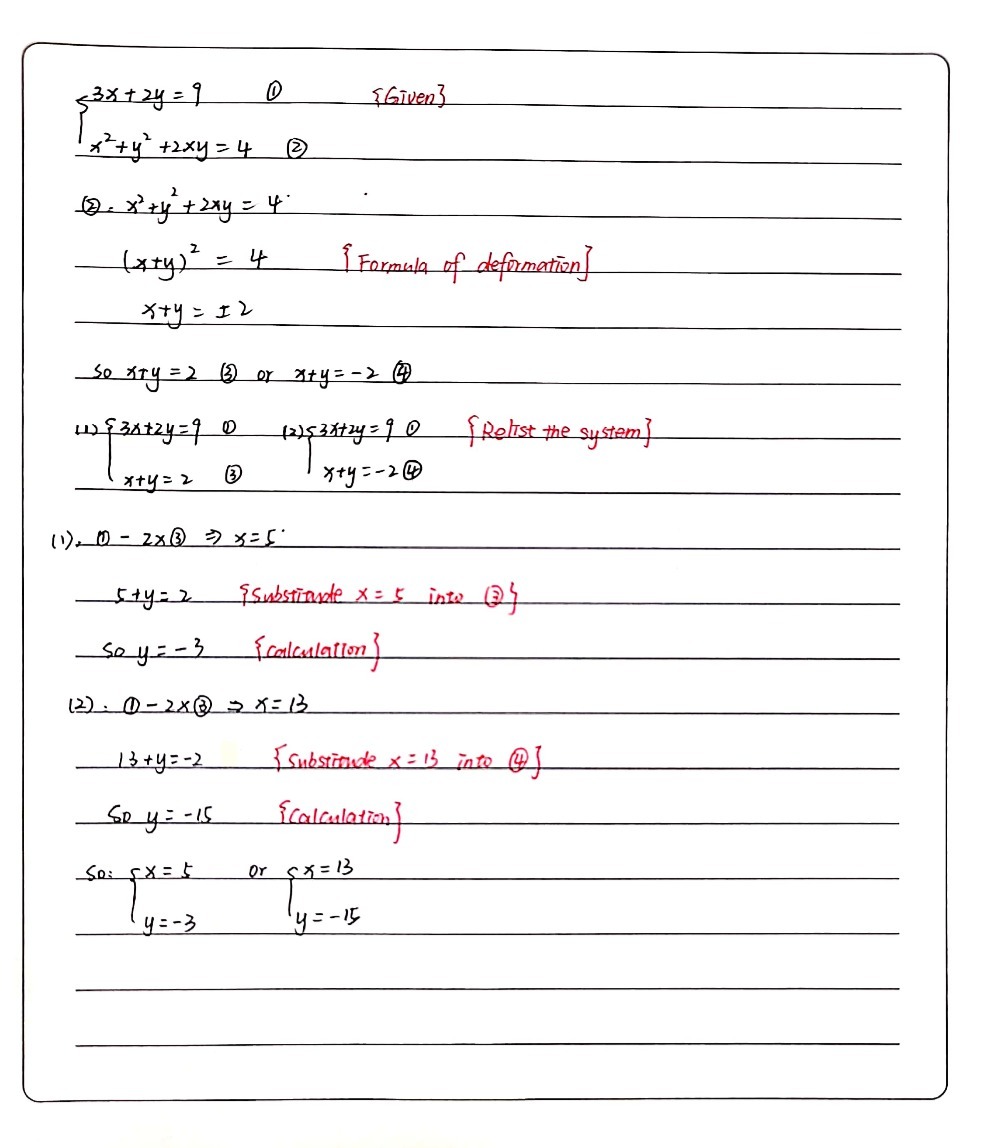 3x+2y=9 ① {Given}
x²+y²+2xy=4 ②
②. x²+y²+2xy=4
(x+y)²=4 {Formula of deformation}
x+y=±2
So x+y=2 ③ or x+y=-2 ④
(1) {3x+2y=9 ① (2) {3x+2y=9 ① {Relist the system}
x+y=2 ③ x+y=-2 ④
(1). ①-2×③ ⇒ x=5
5+y=2 {Substitude x=5 into ③}
So y=-3 {Calculation}
(2). ①-2×③ ⇒ x=13
13+y=-2 {Substitude x=13 into ④}
So y=-15 {Calculation}
So: {x=5 or {x=13
y=-3 y=-15